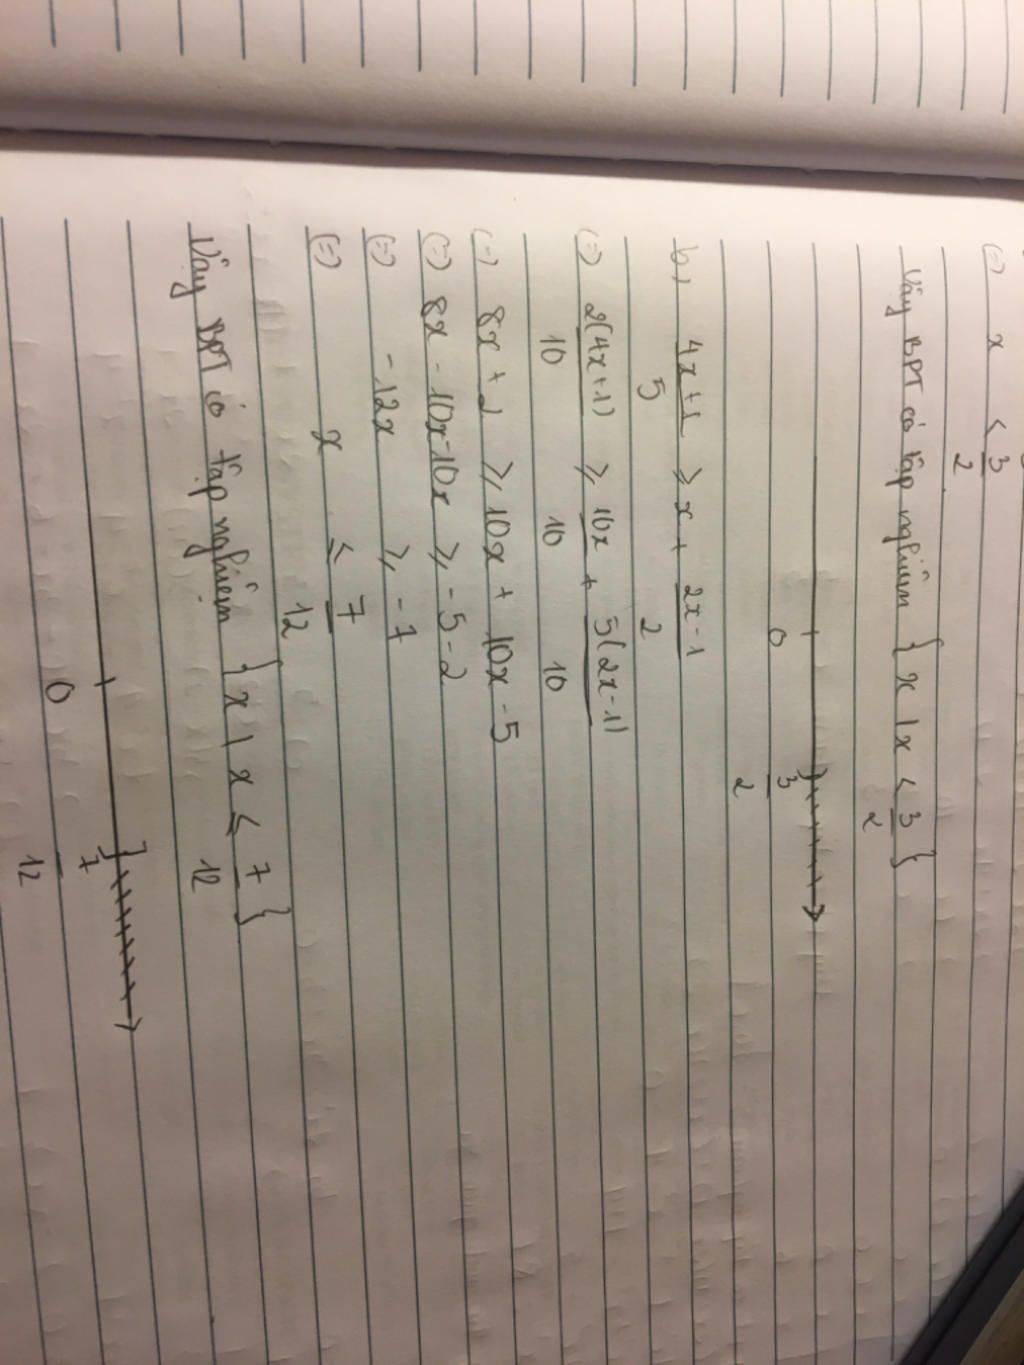 (=) x < 3/2
Vậy BPT có tập nghiệm { x | x < 3/2 }
0 3/2
b) 4x+1/5 ≥ x + 2x-1/2
(=) 2(4x+1)/10 ≥ 10x/10 + 5(2x-1)/10
(-) 8x + 2 ≥ 10x + 10x - 5
(=) 8x - 10x - 10x ≥ -5 - 2
(=) - 12x ≥ - 7
(=) x ≤ 7/12
Vậy BPT có tập nghiệm { x | x ≤ 7/12 }
0 7/12